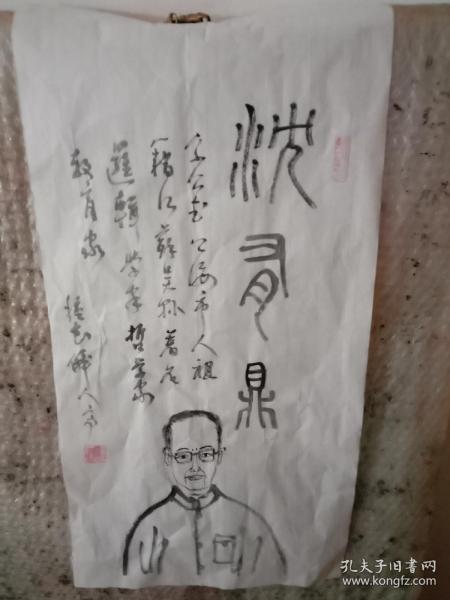 沈有鼎
字公武 上海市人祖
籍江苏吴县 著名
逻辑学家哲学家
教育家
孔夫子旧书网
www.kongfz.com